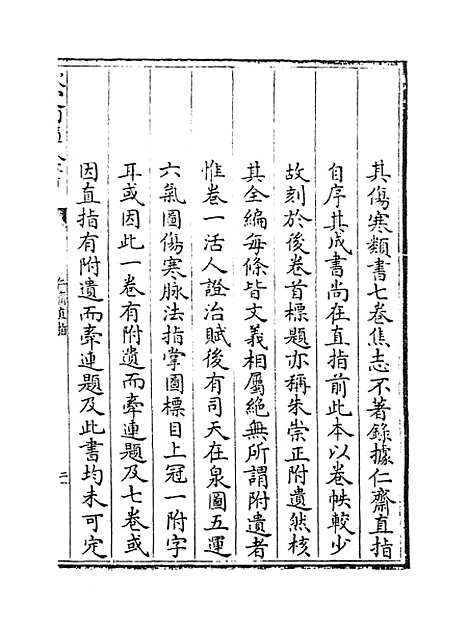 其傷寒類書七卷焦志不著錄據仁齋直指
自序其成書尚在直指前此本以卷帙較少
故刻於後卷首標題亦稱朱崇正附遺然核
其全編每條皆文義相屬絕無所謂附遺者
惟卷一活人證治賦後有司天在泉圖五運
六氣圖傷寒脉法指掌圖標目上冠一附字
耳或因此一卷有附遺而牽連題及七卷或
因直指有附遺而牽連題及此書均未可定
仁齋直指
二